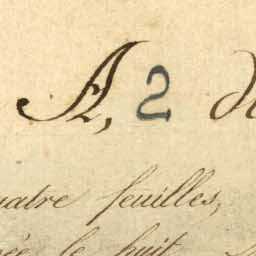 A, 2 d
uatre feuilles,
le huit